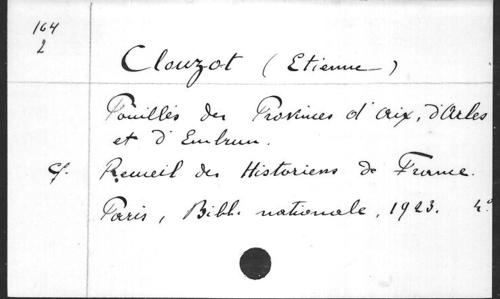 164
2
Clouzot (Etienne)
Pouillés des Provinces d'Aix, d'Arles
et d'Embrun.
Cf. Recueil des Historiens de France.
Paris, Bibl. nationale, 1923. 4°